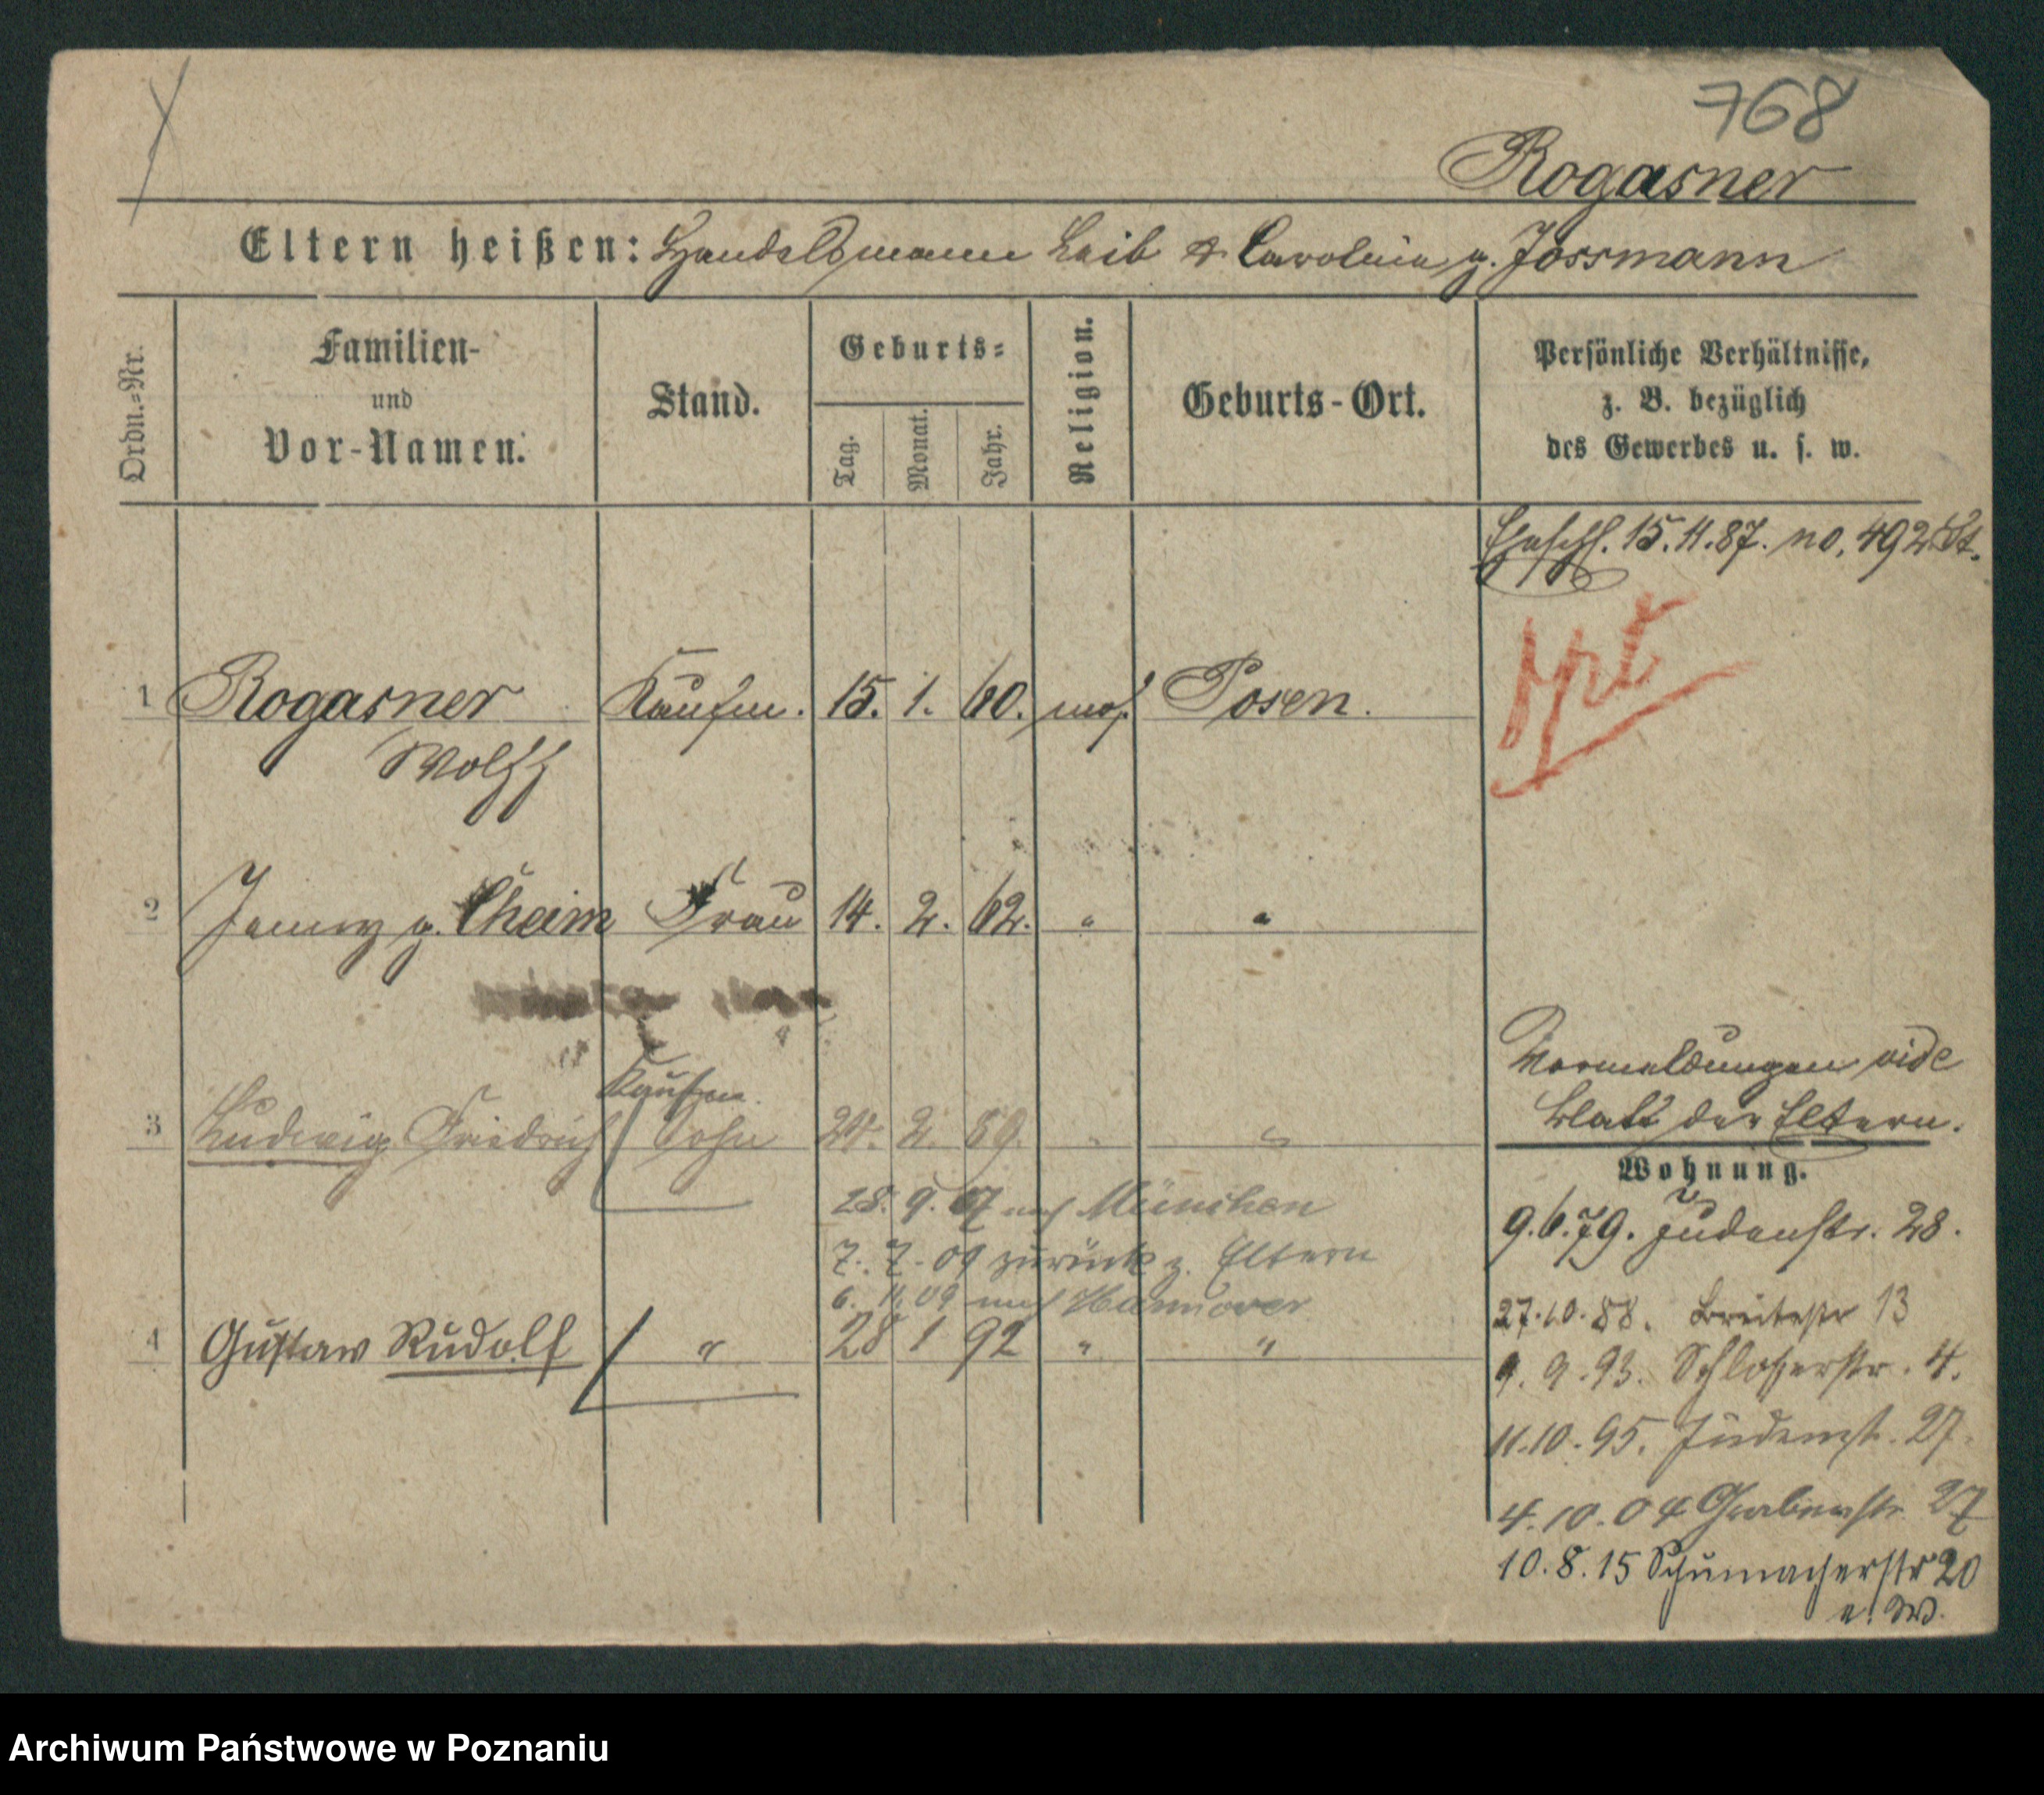 768
Rogasner
Eltern heißen: Handelsmann Leib & Caroline g. Jossmann
Ordn.-Nr.
Familien-
und
Vor-Namen.
Stand.
Geburts-
Tag.
Monat.
Jahr.
Religion.
Geburts-Ort.
Persönliche Verhältnisse,
z. B. bezüglich
des Gewerbes u. s. w.
15.11.87. no. 492
1 Rogasner Kaufm. 15. 1. 60. mos. Posen.
Wolff
2 Jenny g. Cheim Frau 14. 2. 62. " "
Vormeldungen vide
Blatt der Eltern.
Kaufm.
3 Ludwig Friedrich Sohn 24. 2. 89. " "
Wohnung.
28. 9. 07 nach München
9.6.79. Judenstr. 28.
7. 7. 09 zurück z. Eltern
6. 11. 09 nach Hannover
27.10.88. Breitestr 13
4 Gustaw Rudolf " 28 1 92 " "
9. 9. 93. Schlosserstr. 4.
11.10.95. Judenst. 27.
4.10.04 Grabenstr. 27
10.8.15 Schumacherstr 20
Archiwum Państwowe w Poznaniu